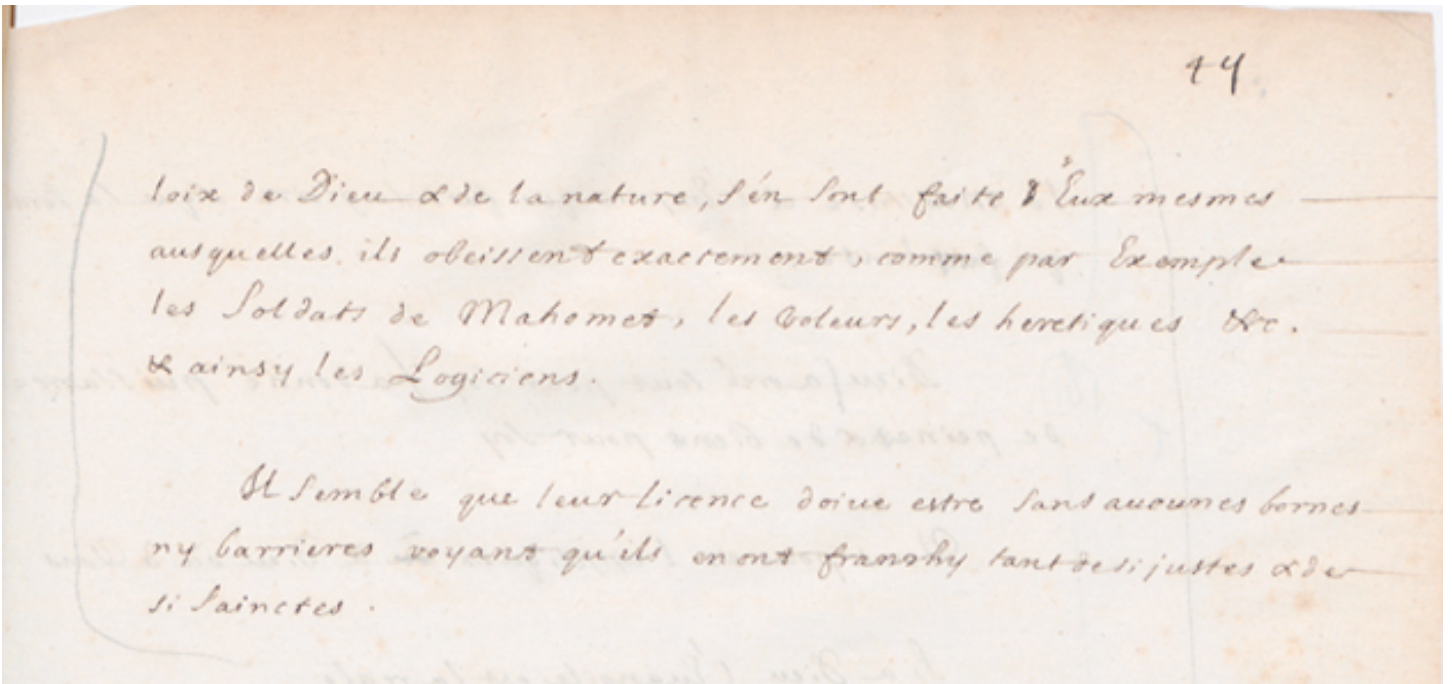 44
loix de Dieu & de la nature, s'én sont faite d'Eux mesmes
ausquelles ils obeissent exactement, comme par Exemple
les Soldats de Mahomet, les voleurs, les heretiques &c.
& ainsy les Logiciens.
Il semble que leur licence doiue estre sans aucunes bornes
ny barrieres voyant qu'ils en ont franchy tant de si justes & de
si sainctes.